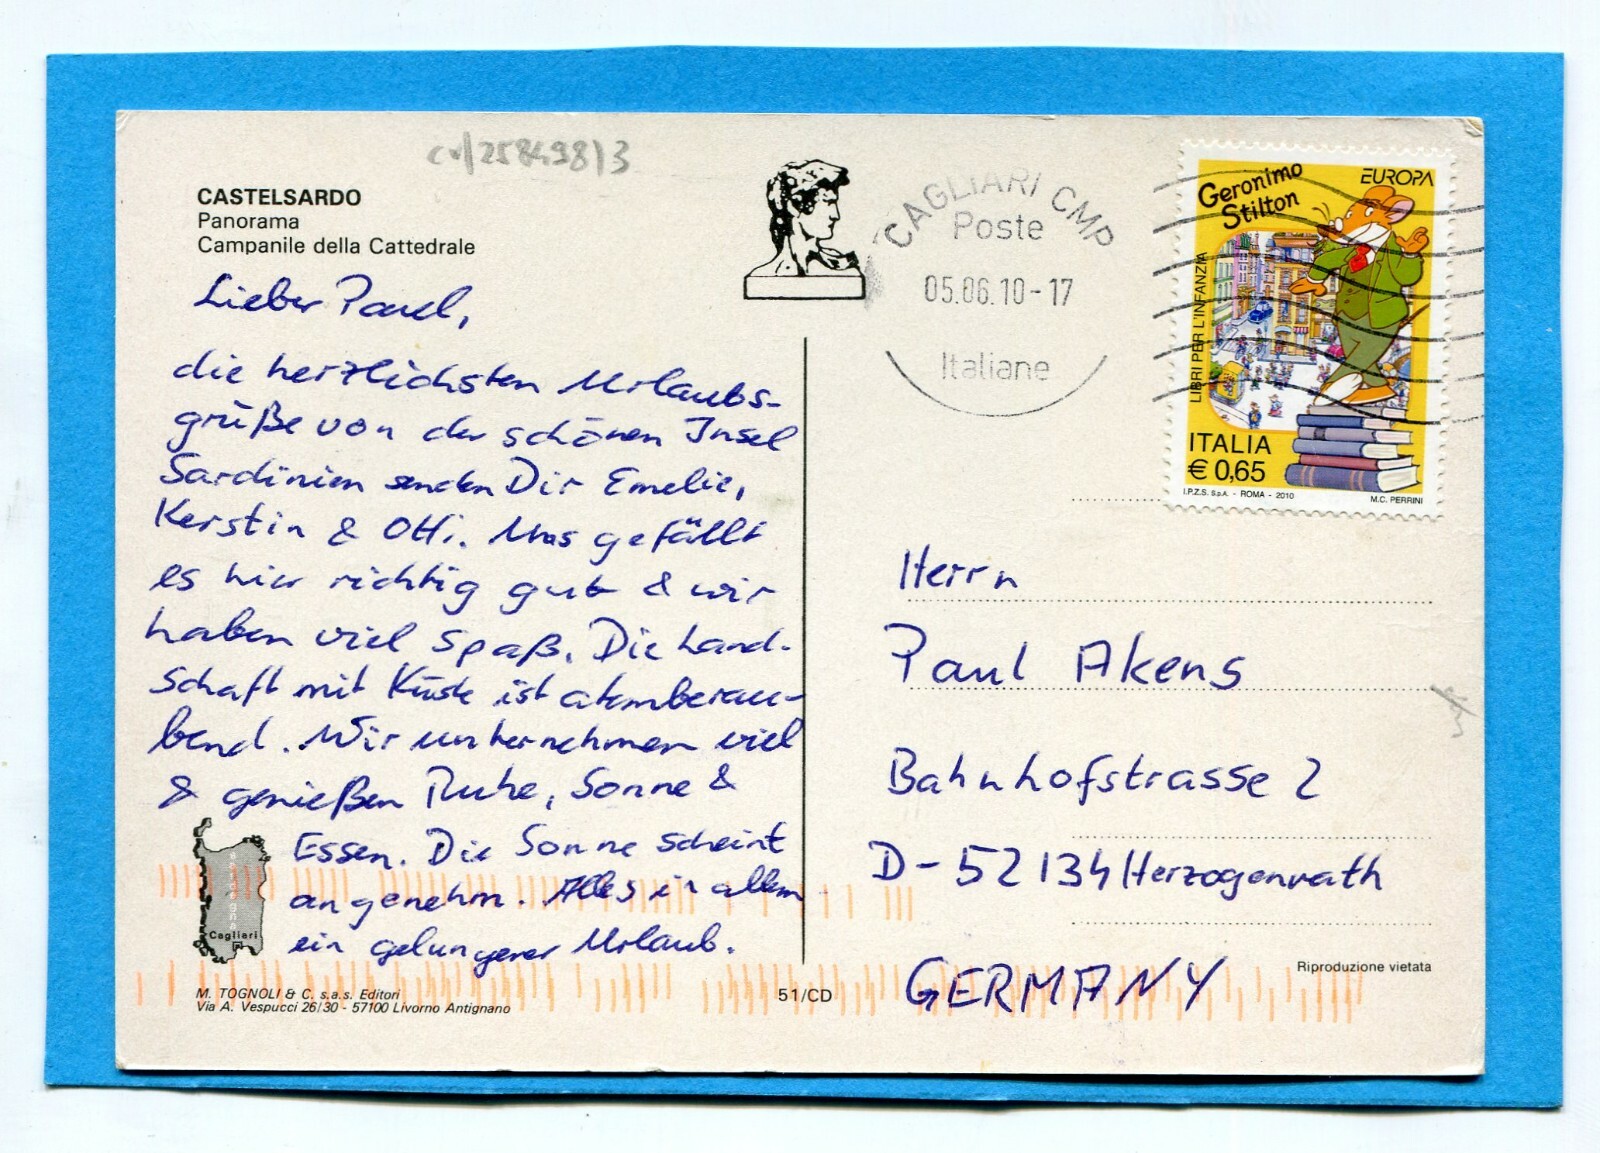 cv/258498/3
CASTELSARDO
Panorama
Campanile della Cattedrale
Lieber Paul,
die herzlichsten Urlaubs-
grüße von der schönen Insel
Sardinien senden Dir Emelie,
Kerstin & Otti. Uns gefällt
es hier richtig gut & wir
haben viel Spaß. Die Land-
schaft mit Küste ist atemberau-
bend. Wir unternehmen viel
& genießen Ruhe, Sonne &
Essen. Die Sonne scheint
angenehm. Alles in allem
ein gelungener Urlaub.
Sardegna
Cagliari
M. TOGNOLI & C. s.a.s. Editori
Via A. Vespucci 26/30 - 57100 Livorno Antignano
51/CD
CAGLIARI CMP
Poste
05.06.10-17
Italiane
Geronimo
Stilton
EUROPA
LIBRI PER L'INFANZIA
ITALIA
€ 0,65
I.P.Z.S. S.p.A. - ROMA - 2010
M.C. PERRINI
Herrn
Paul Akens
Bahnhofstrasse 2
D-52134 Herzogenrath
GERMANY
Riproduzione vietata